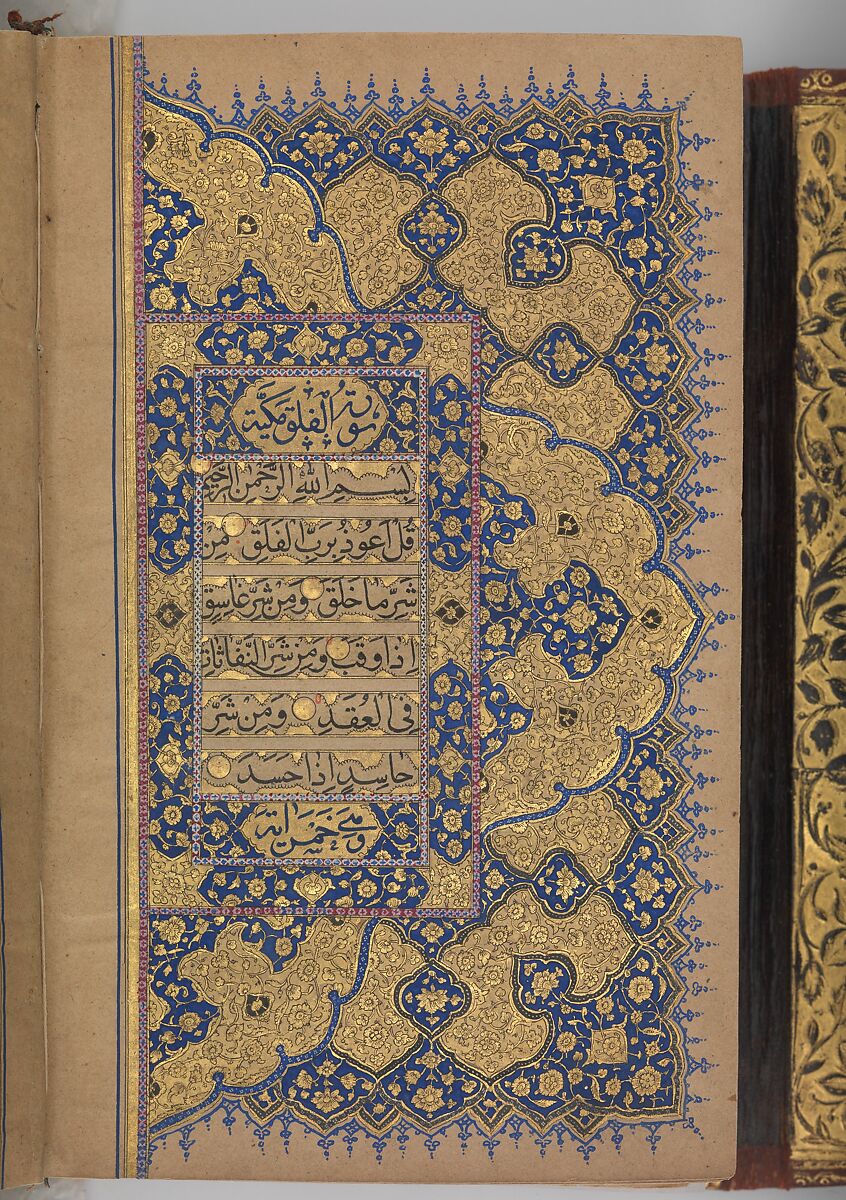 سورة الفلق مكية
بِسْمِ اللهِ الرَّحْمنِ الرَّحِيمِ
قُلْ اَعُوذُ بِرَبِّ الْفَلَقِ مِنْ
شَرِّ مَا خَلَقَ وَمِنْ شَرِّ غَاسِقٍ
اِذَا وَقَبَ وَمِنْ شَرِّ النَّفَّاثَاتِ
فِى الْعُقَدِ وَمِنْ شَرِّ
حَاسِدٍ اِذَا حَسَدَ
وهي خمس آية